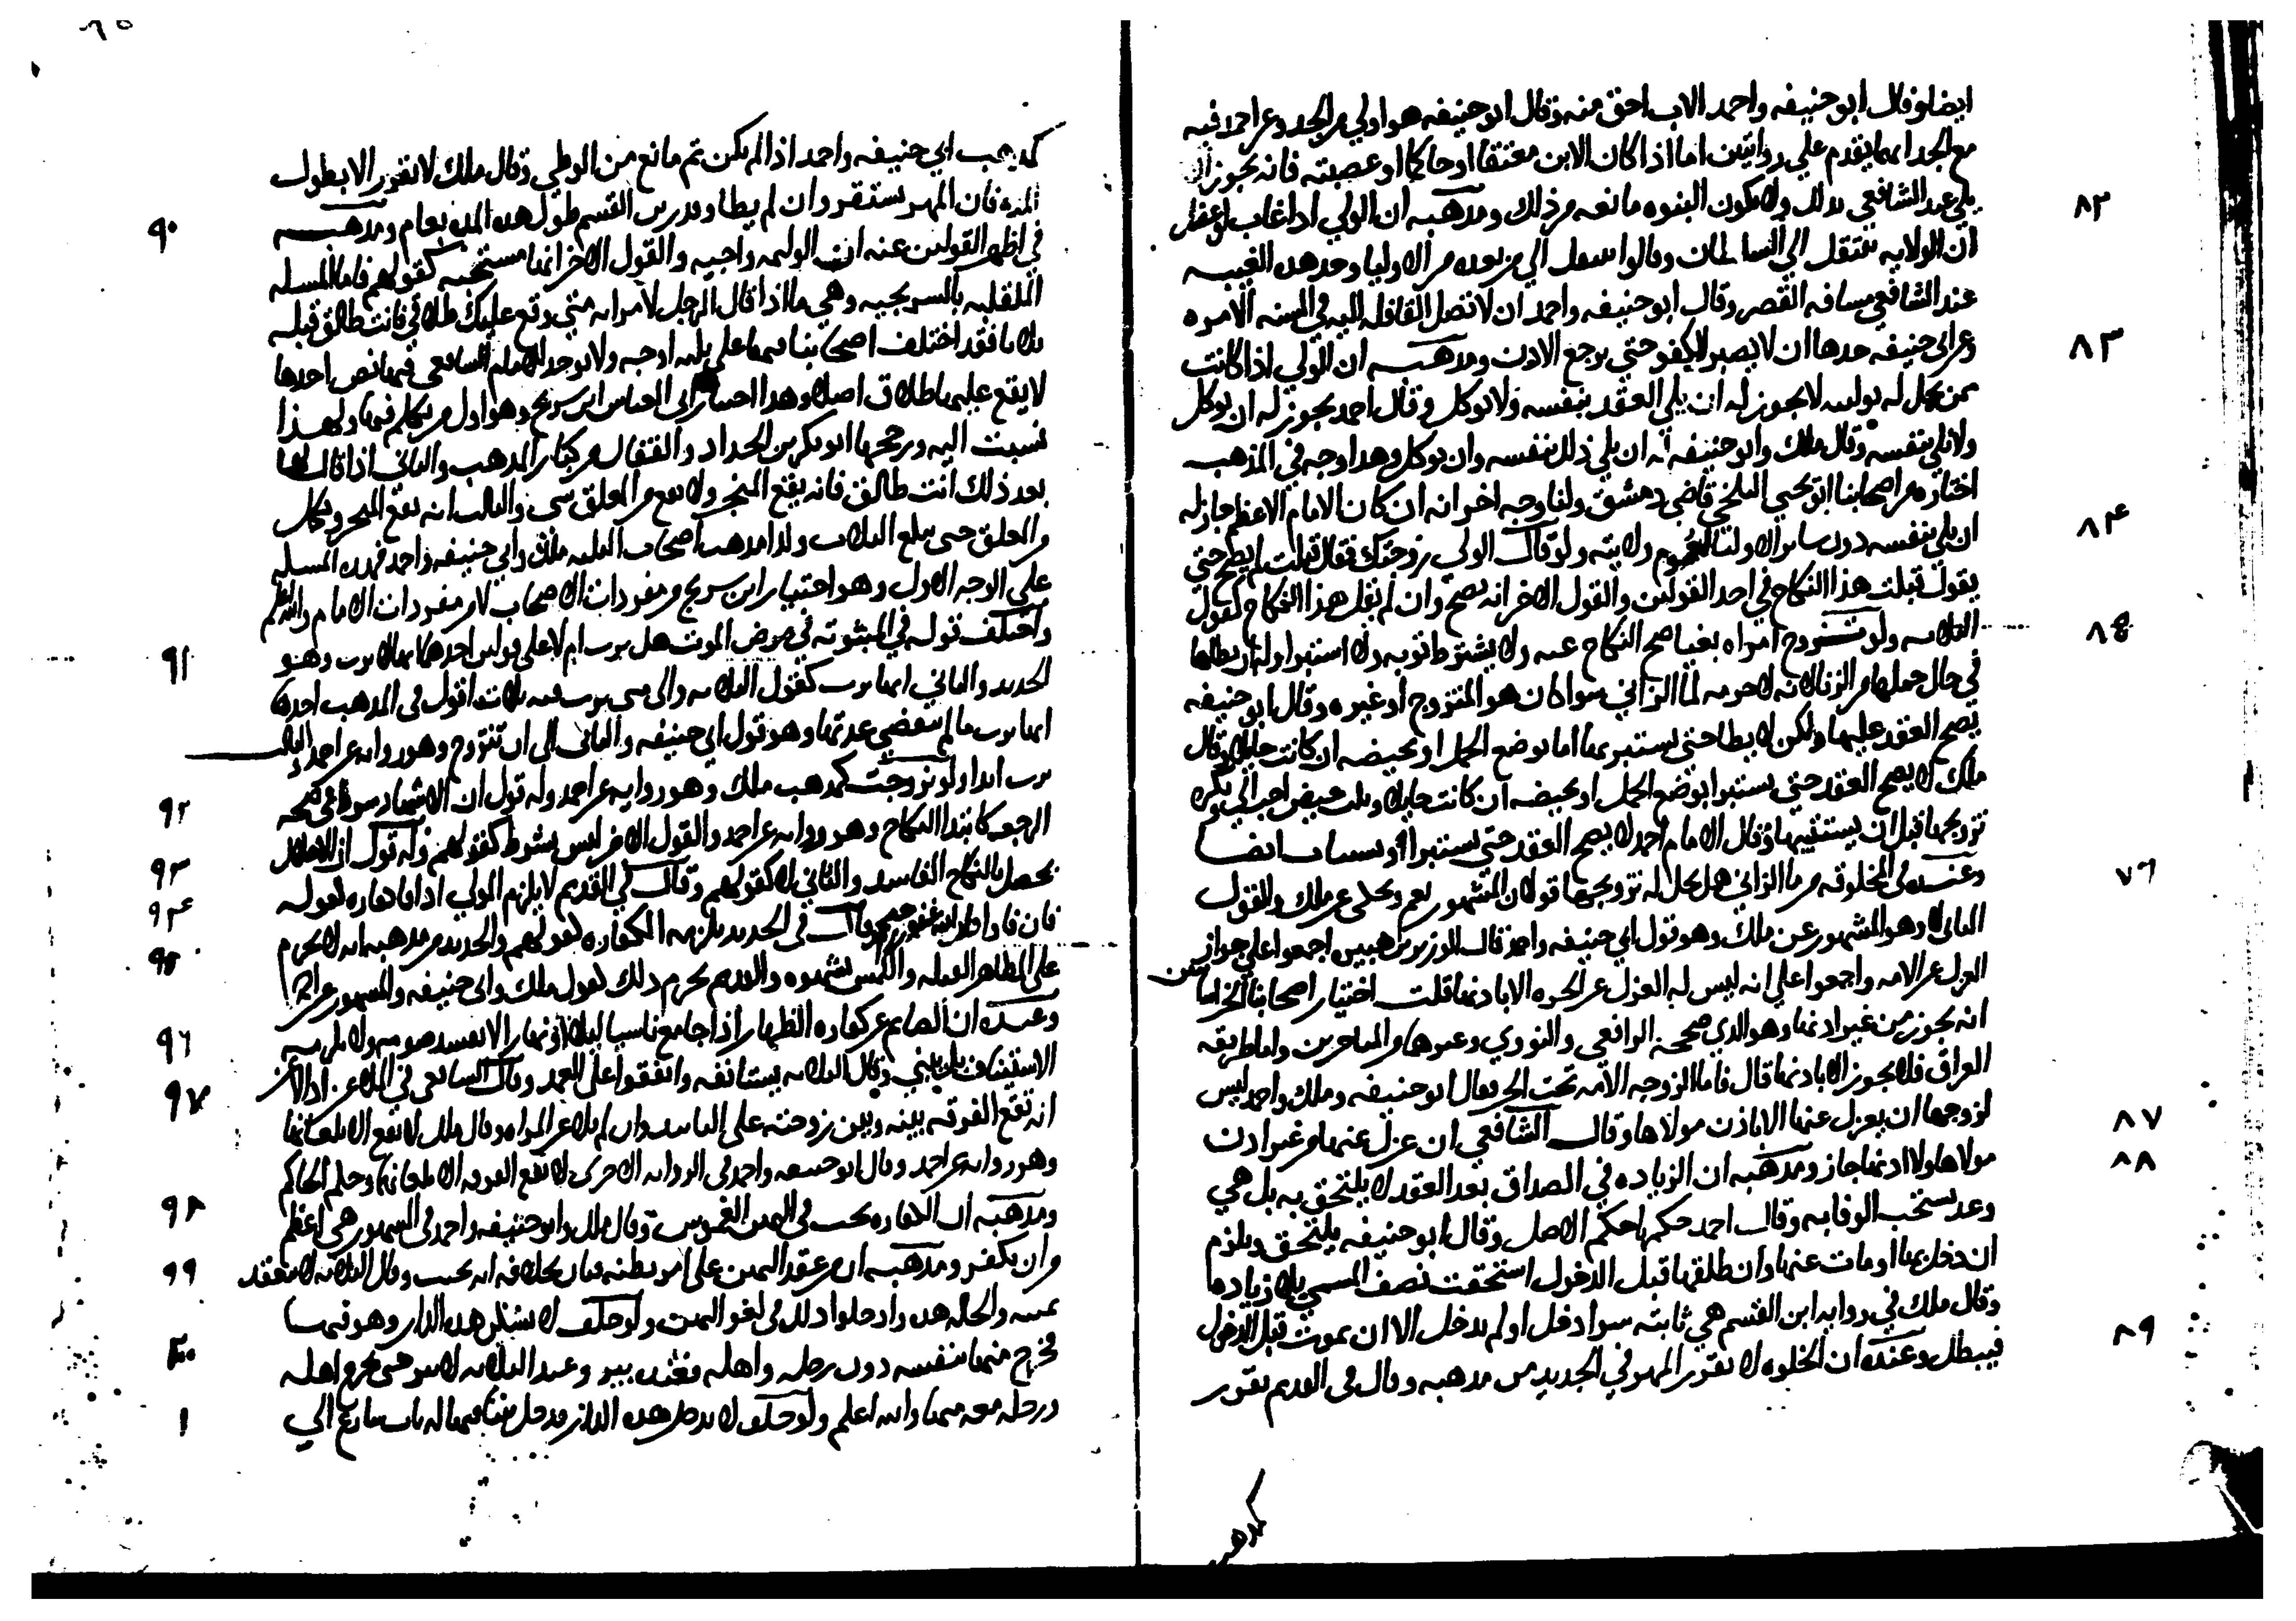 ايضا وقال ابو حنيفه واحمد الاب احق منه وقال ابو حنيفه هو اولي من الجد وعن احمد فيه
مع الجد ايهما يقدم علي روايتين اما اذا كان الابن معتقا او حاكما او عصبته فانه يجوز ان
يلي عند الشافعي بذلك ولا يكون البنوه مانعه من ذلك ومذهبه ان الولي اذا غاب او عضل
٨٢
ان الولايه تنتقل الي السلطان وقالوا تنتقل الي من بعده من الاوليا وحد هذه الغيبه
عند الشافعي مسافه القصر وقال ابو حنيفه واحمد ان لا تصل القافله اليه في السنه الا مره
وعن ابي حنيفه حدها ان لا يصبر الكفو حتي يرجع الاذن ومذهبه ان الولي اذا كانت
٨٣
ممن يحل له موليته لا يجوز له ان يلي العقد بنفسه ولا يوكل وقال احمد يجوز له ان يوكل
ولا يلي بنفسه وقال ملك وابو حنيفه له ان يلي ذلك بنفسه وان يوكل وهذا وجه في المذهب
اختاره من اصحابنا ابو يحيي البلخي قاضي دمشق ولنا وجه اخر انه ان كان الامام الاعظم جاز له
ان يلي بنفسه دون ساير الاوليا لعموم ولايته ولو قال الولي زوجتك فقال قبلت لم يصح حتي
٨٤
يقول قبلت هذا النكاح في احد القولين والقول الاخر انه يصح وان لم يقل هذا النكاح كقول
الثلاثه ولو تزوج امراه بغيا صح النكاح عنده ولا يشترط توبه ولا استبرا وله ان يطاها
٨٥
في حال حملها من الزنا لانه لا حرمه لما الزاني سوا كان هو المتزوج او غيره وقال ابو حنيفه
يصح العقد عليها ولكن لا يطا حتي يستبريها اما بوضع الحمل او بحيضه ان كانت حايلا وقال
ملك لا يصح العقد حتي يستبرا بوضع الحمل او بحيضه ان كانت حايلا وثلث حيض احب الي ويكره
تزويجها قبل ان يستتيبها وقال الامام احمد لا يصح العقد حتي يستبرا او يستتاب ايضا
وعنده في المخلوقه من ما الزاني هل يحل له تزويجها قولان المشهور نعم وحكي عن ملك والقول
٧٦
الثاني لا وهو المشهور عن ملك وهو قول ابي حنيفه واحمد قال الوزير بن هبيره اجمعوا علي جواز
العزل عن الامه واجمعوا علي انه ليس له العزل عن الحره الا باذنها قلت اختيار اصحابنا الخراسانيين
انه يجوز من غير اذنها وهو الذي صححه الرافعي والنووي وغيرهما من المتاخرين واما طريقه
العراق فلا يجوز الا باذنها قال فاما الزوجه الامه تحت الحر فقال ابو حنيفه وملك واحمد ليس
لزوجها ان يعزل عنها الا باذن مولاها وقال الشافعي ان عزل عنها من غير اذن
٨٧
مولاها ولا اذنها جاز ومذهبه ان الزياده في الصداق بعد العقد لا يلتحق به بل هي
٨٨
وعد يستحب الوفا به وقال احمد حكمها حكم الاصل وقال ابو حنيفه يلتحق ويلزم
ان دخل بها او مات عنها وان طلقها قبل الدخول استحقت نصف المسمي بلا زياده
وقال ملك في روايه ابن القسم هي ثابته سوا دخل او لم يدخل الا ان يموت قبل الدخول
فيبطل وعنده ان الخلوه لا تقرر المهر في الجديد من مذهبه وقال في القديم تقرر
٨٩
كمذهب
٩٥
كمذهب ابي حنيفه واحمد اذا لم يكن ثم مانع من الوطي وقال ملك لا تقرر الا بطول
المده فان المهر يستقر وان لم يطا وقدر ابن القسم طول هذه المده بعام ومذهبه
٩٠
في اظهر القولين عنه ان الوليمه واجبه والقول الاخر انها مستحبه كقولهم فاما المسله
الملقبه بالسريجيه وهي ما اذا قال الرجل لامراته متي وقع عليك طلاقي فانت طالق قبله
ثلاثا فقد اختلف اصحابنا فيها علي ثلثه اوجه ولا يوجد للامام الشافعي فيها نص احدها
لا يقع عليها طلاق اصلا وهذا اختيار ابي العباس ابن سريج وهو اول من تكلم فيها ولهذا
نسبت اليه ورجحها ابو بكر بن الحداد والقفال من كبار المذهب والثاني اذا قال لها
بعد ذلك انت طالق فانه يقع المنجز ولا يقع من المعلق شي والثالث انه يقع المنجز ويكمل
من المعلق حتي يبلغ الثلاث ولذا مذهب اصحاب الثلثه ملك وابي حنيفه واحمد فهذه المسله
علي الوجه الاول وهو اختيار ابن سريج من مفردات الاصحاب لا من مفردات الامام والله اعلم
واختلف قوله في المبتوته في مرض الموت هل ترث ام لا علي قولين احدهما انها لا ترث وهو
٩١
الجديد والثاني انها ترث كقول الثلاثه والي متي ترث فيه ثلاث اقول في المذهب احدها
انها ترث ما لم تنقضي عدتها وهو قول ابي حنيفه والثاني الي ان تتزوج وهو روايه عن احمد الثالث
ترث ابدا ولو تزوجت كمذهب ملك وهو روايه عن احمد وله قول ان الاشهاد شرط في صحه
٩٢
الرجعه كابتدا النكاح وهو روايه عن احمد والقول الاخر ليس بشرط كقولهم وله قول ان الاحلال
يحصل بالنكاح الفاسد والثاني لا كقولهم وقال في القديم لا يلزم المولي اذا فا كفاره لقوله
٩٣
فان فاوا فان الله غفور رحيم وقال في الجديد يلزمه الكفاره كقولهم والجديد من مذهبه انه لا يحرم
٩٤
علي المظاهر القبله واللمس بشهوه والقديم يحرم ذلك كقول ملك وابي حنيفه والمشهور عن احمد
٩٥
وعنده ان الصايم عن كفاره الظهار اذا جامع ناسيا ليلا او نهارا لا يفسد صومه ولا يلزمه
٩٦
الاستيناف بل يبني وقال الثلاثه يستانفه واتفقوا علي العمد وقال الشافعي في الملاعن اذا لاعن
٩٧
انه تقع الفرقه بينه وبين زوجته علي التابيد وان لم تلاعن المراه وقال ملك لا تقع الا بلعانهما
وهو روايه عن احمد وقال ابو حنيفه واحمد في الروايه الاخري لا تقع الفرقه الا بلعانهما وحكم الحاكم
ومذهبه ان الكفاره تجب في اليمين الغموس وقال ملك وابو حنيفه واحمد في المشهور هي اعظم
٩٨
من ان يكفر ومذهبه ان من عقد اليمين علي امر يظنه فبان بخلافه انه يحنث وقال الثلاثه لا تنعقد
٩٩
يمينه والحاله هذه وادخلوا ذلك في لغو اليمين ولو حلف لا يسكن هذه الدار وهو فيها
فخرج منها بنفسه دون رحله واهله فعنده يبر وعند الثلاثه لا يبر حتي يخرج اهله
١٠٠
ورحله معه منها والله اعلم ولو حلف لا يدخل هذه الدار فدخل بيتا فيها له باب شارع الي
١